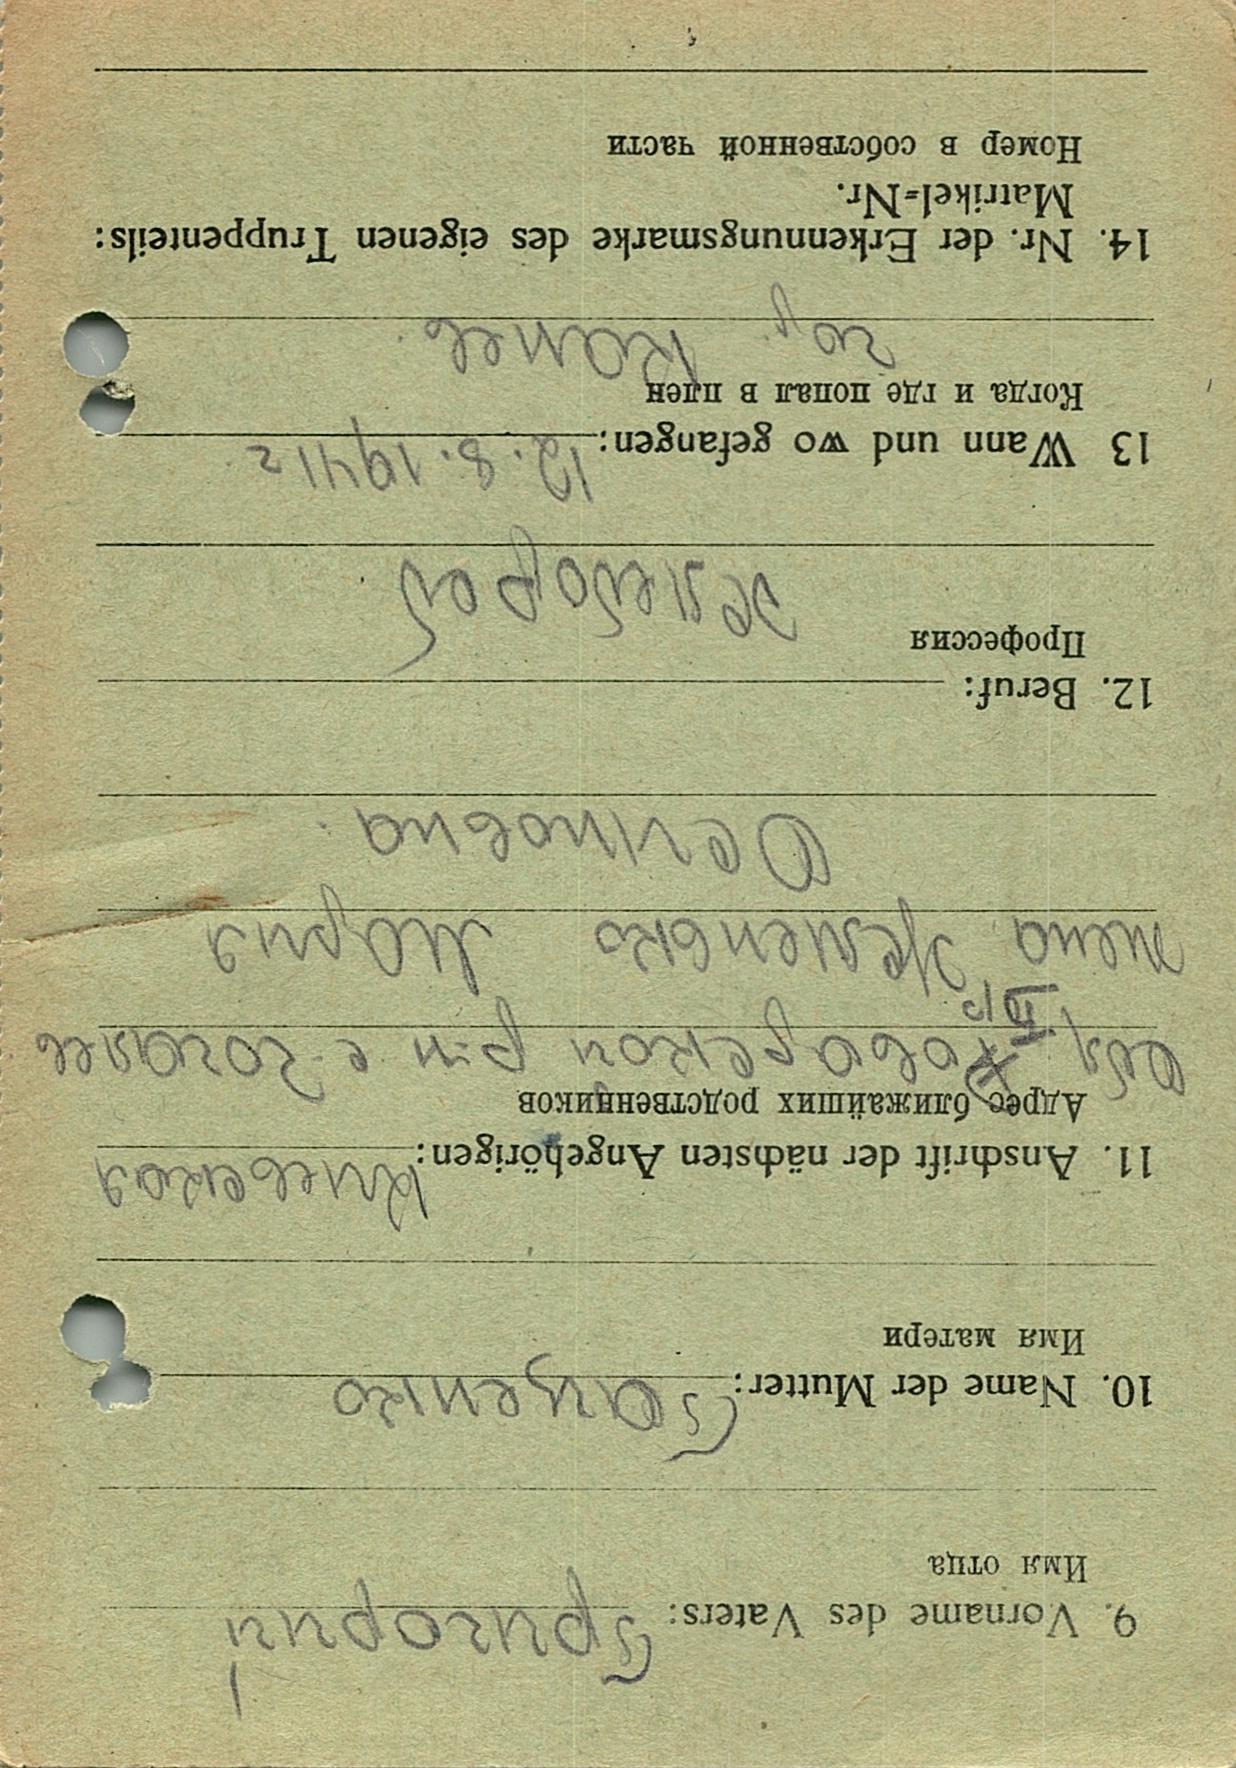 9. Vorname des Vaters: Григорий
Имя отца
10. Name der Mutter: Гаценко
Имя матери
11. Anschrift der nächsten Angehörigen: Киевская
Адрес ближайших родственников
обл, р-н с
жена Мария
12. Beruf:
Профессия
хлебороб
13 Wann und wo gefangen: 12.8.1941 г
Когда и где попал в плен
Канев.
14. Nr. der Erkennungsmarke des eigenen Truppenteils:
Matrikel=Nr.
Номер в собственной части